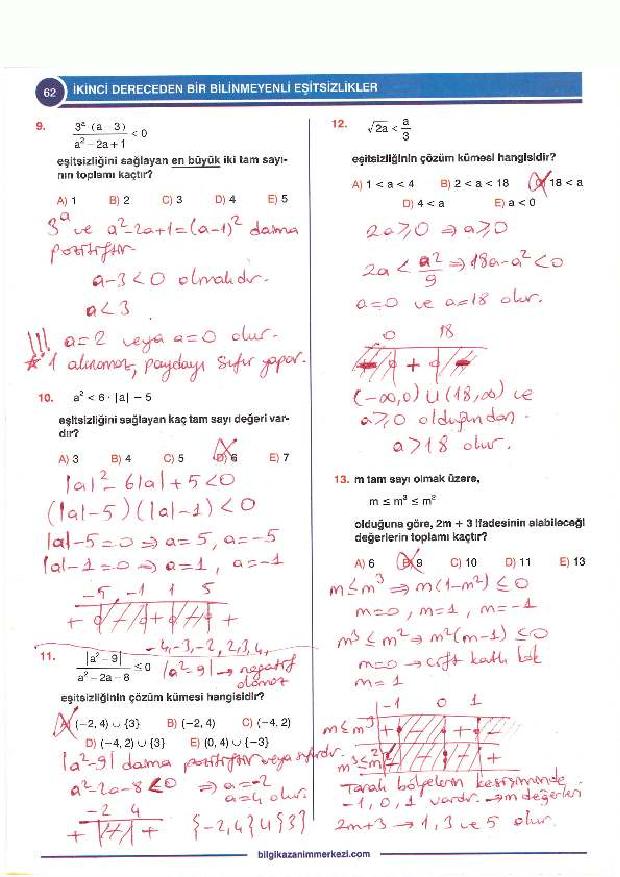 62 İKİNCİ DERECEDEN BİR BİLİNMEYENLİ EŞİTSİZLİKLER
9. 3ᵃ (a – 3) / a² – 2a + 1 < 0
eşitsizliğini sağlayan en büyük iki tam sayı-
nın toplamı kaçtır?
A) 1 B) 2 C) 3 D) 4 E) 5
3ᵃ ve a²-2a+1=(a-1)² daima
pozitiftir.
a-3<0 olmalıdır.
a<3
!!! a=2 veya a=0 olur.
* 1 alınamaz, paydayı sıfır yapar.
10. a² < 6 · |a| – 5
eşitsizliğini sağlayan kaç tam sayı değeri var-
dır?
A) 3 B) 4 C) 5 D) 6 E) 7
|a|²-6|a|+5<0
(|a|-5)(|a|-1)<0
|a|-5=0 ⇒ a=5, a=-5
|a|-1=0 ⇒ a=1, a=-1
-5 -1 1 5
+ + +
-4,-3,-2,2,3,4,
11. |a² – 9| / a² – 2a – 8 ≤ 0
|a²-9| → negatif
olamaz
eşitsizliğinin çözüm kümesi hangisidir?
A) (–2, 4) ∪ {3} B) (–2, 4) C) (–4, 2)
D) (–4, 2) ∪ {3} E) (0, 4) ∪ {–3}
|a²-9| daima pozitiftir veya sıfırdır.
a²-2a-8<0 ⇒ a=-2
a=4 olur.
-2 4
+ +
{-2,4}∪{3}
12. √2a < a/3
eşitsizliğinin çözüm kümesi hangisidir?
A) 1 < a < 4 B) 2 < a < 18 C) 18 < a
D) 4 < a E) a < 0
2a≥0 ⇒ a≥0
2a < a²/9 ⇒ 18a-a²<0
a=0 ve a=18 olur.
0 18
+
(-∞,0) ∪ (18,∞) ve
a≥0 olduğundan
a>18 olur.
13. m tam sayı olmak üzere,
m ≤ m³ ≤ m²
olduğuna göre, 2m + 3 ifadesinin alabileceği
değerlerin toplamı kaçtır?
A) 6 B) 9 C) 10 D) 11 E) 13
m≤m³ ⇒ m(1-m²)≤0
m=0, m=1, m=-1
m³≤m² ⇒ m²(m-1)≤0
m=0 → çift katlı kök
m=1
-1 0 1
m≤m³ + +
m³≤m² +
Taralı bölgelerin kesişiminde
-1,0,1 vardır. → m değerleri
2m+3 → 1,3 ve 5 olur.
bilgikazanimmerkezi.com